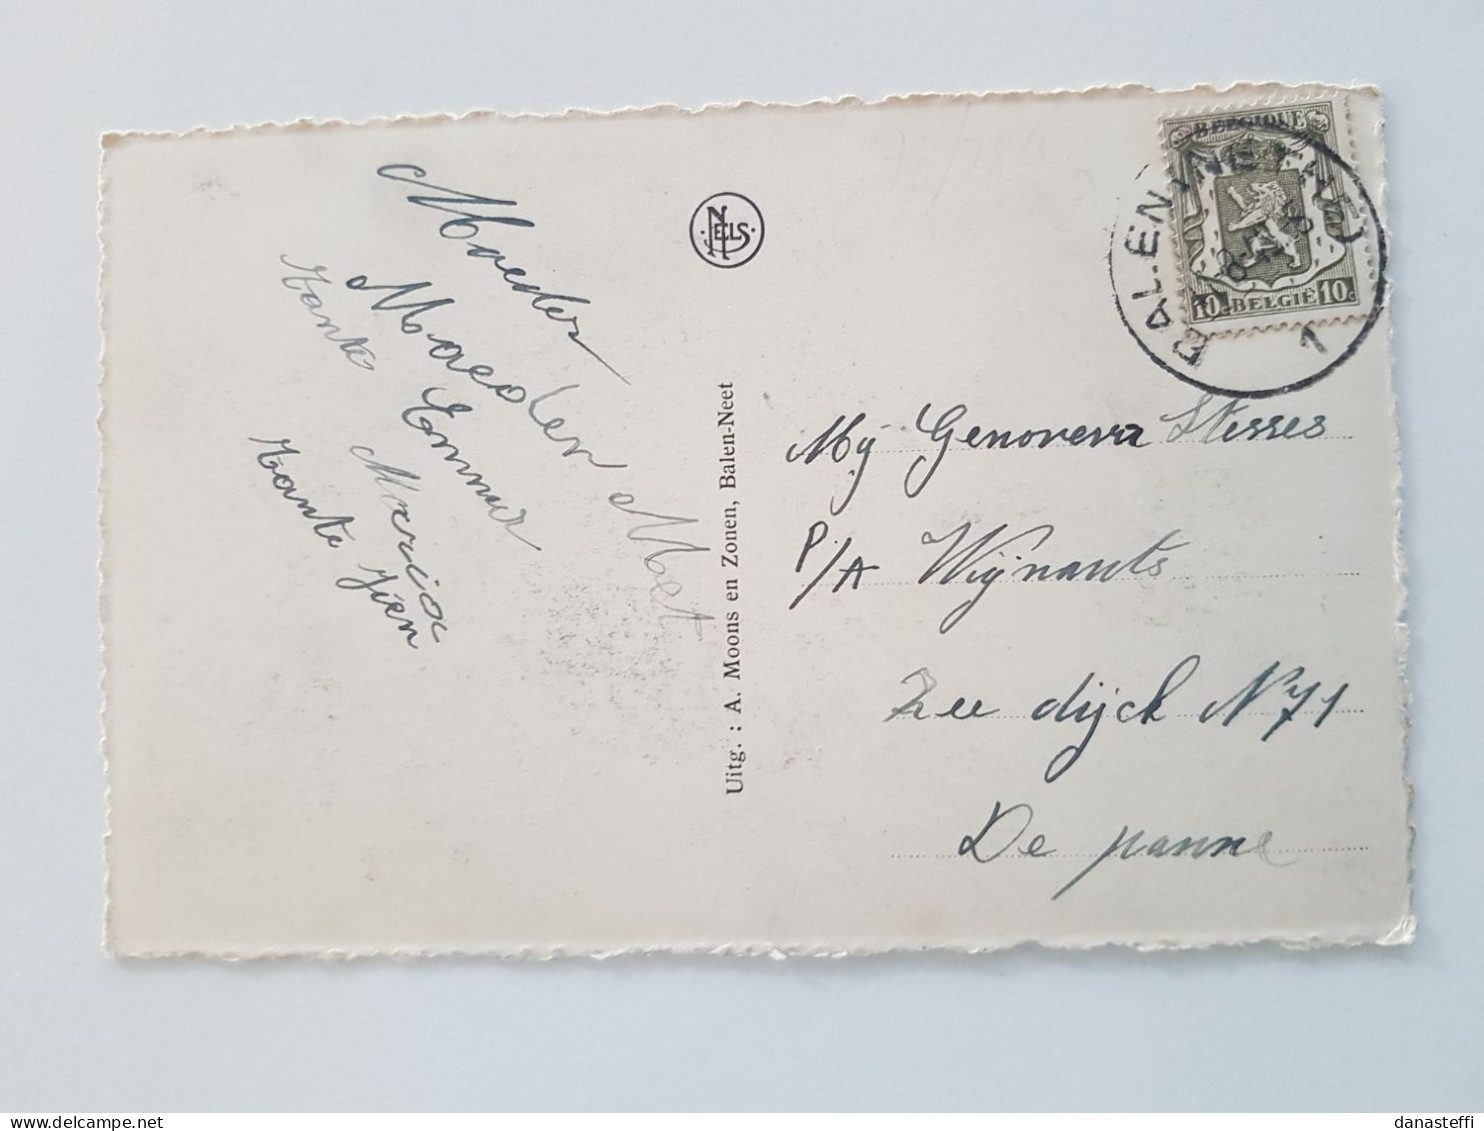 Moeder
Tante Emma
Maria
Tante Jien
NELS
Uitg. : A. Moons en Zonen, Balen-Neet
BELGIQUE
10c BELGIË 10c
BALEN (NEET)
1
Mij Genoveva Stesses
P/A Wijnants
Zee dijck N 71
De panne
danasteffi